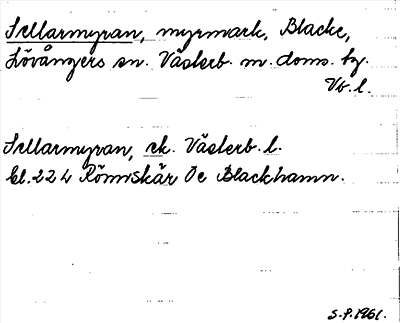 Sellarmyran, myrmark, Blacke,
Lövångers sn. Västerb. m. doms. fg.
Vb. l.
Sellarmyran, ek. Västerb. l.
Bl. 22 L Rönnskär Oe Blackhamn.
S.P. 1961.